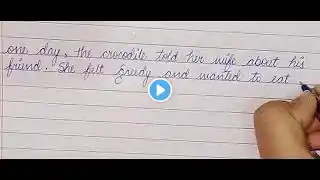 one day, the crocodile told her wife about his
friend. She felt greedy and wanted to eat